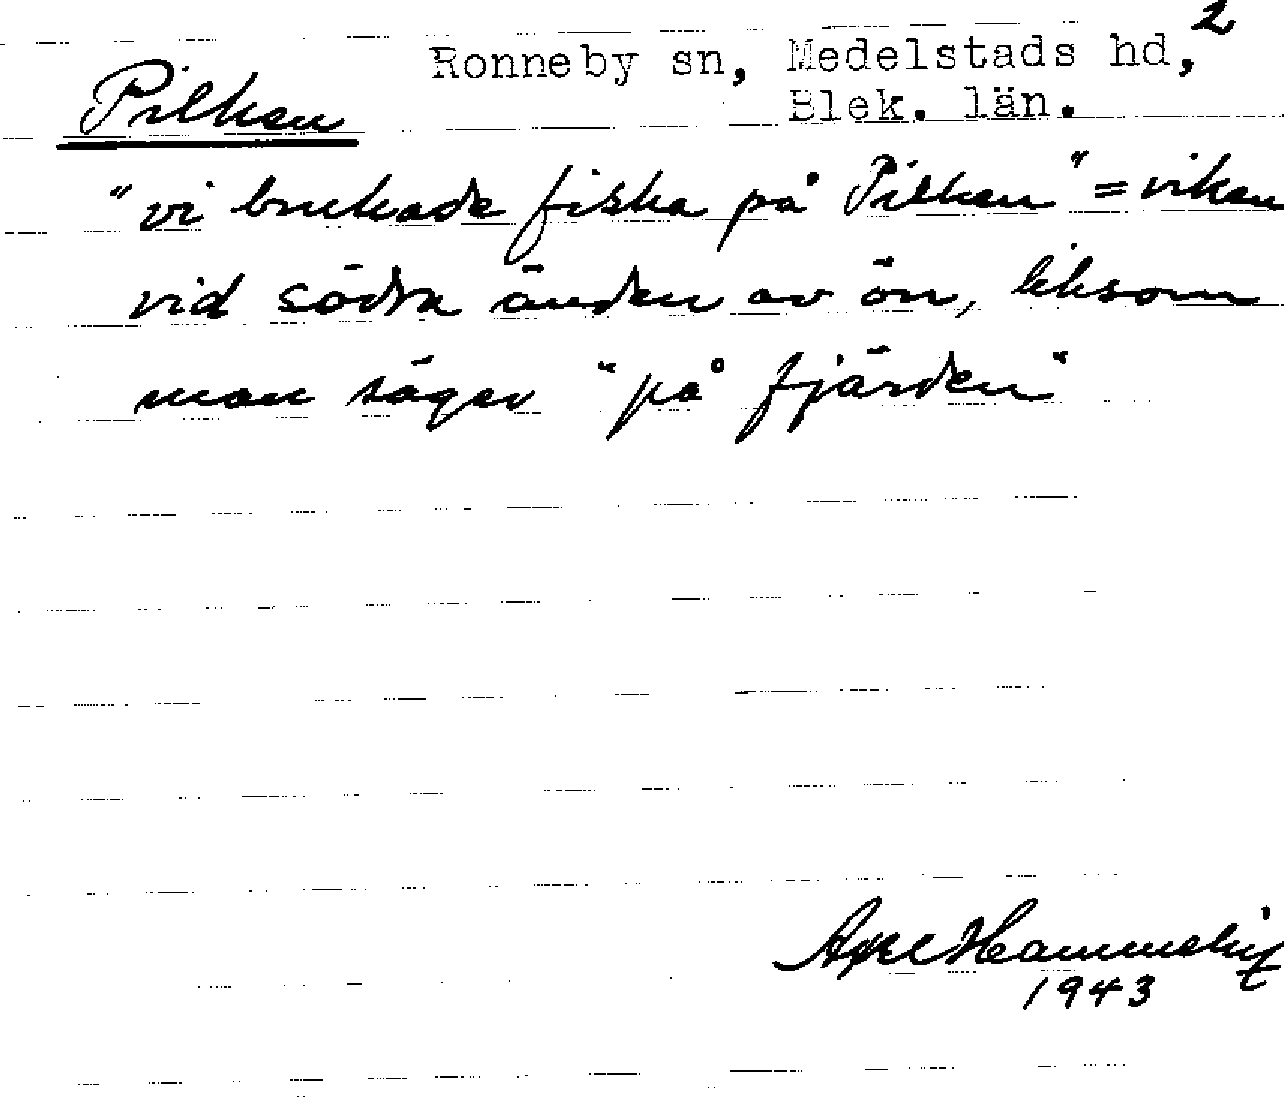 2
Ronneby sn, Medelstads hd,
Pilken
Blek. län.
"vi brukade fiska på Pilken" = viken
vid södra änden av ön, liksom
man säger "på fjärden"
Axel
1943